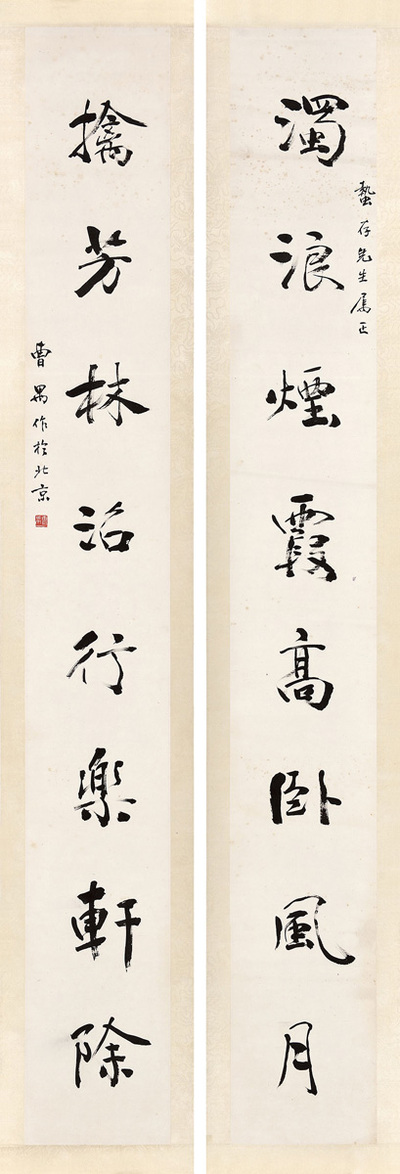 濁浪煙霞高臥風月
蟄存先生属正
擒芳林沼行樂軒除
曹禺作於北京